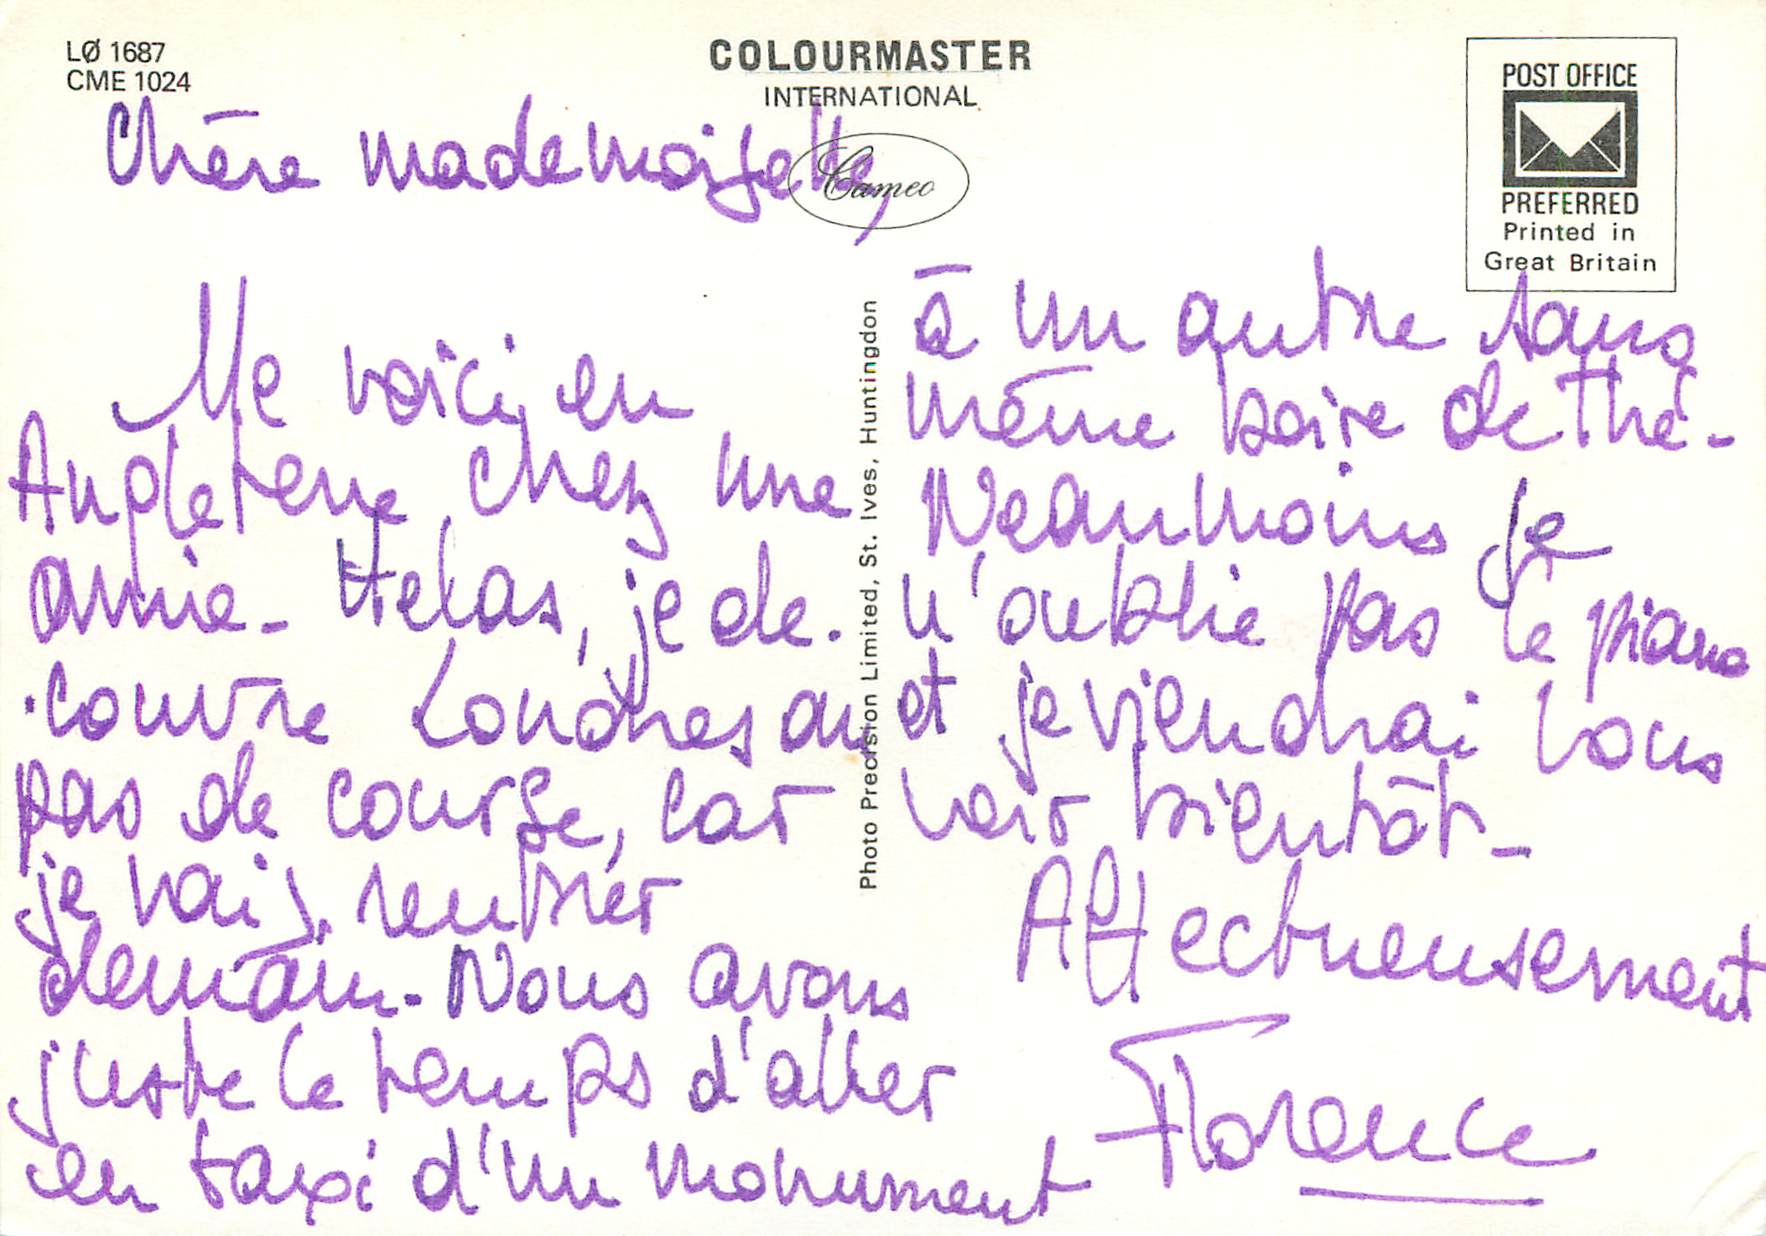 LØ 1687
CME 1024
COLOURMASTER
INTERNATIONAL
Cameo
POST OFFICE
PREFERRED
Printed in
Great Britain
Photo Precision Limited, St. Ives, Huntingdon
Chère mademoiselle,
Me voici en
Angleterre chez une
amie - Helas, je dé-
couvre Londres au
pas de course, car
je vais rentrer
demain. Nous avons
juste le temps d'aller
en taxi d'un monument
à un autre sans
même boire de thé -
Néanmoins je
n'oublie pas le piano
et je viendrai vous
voir bientôt -
Affectueusement
Florence